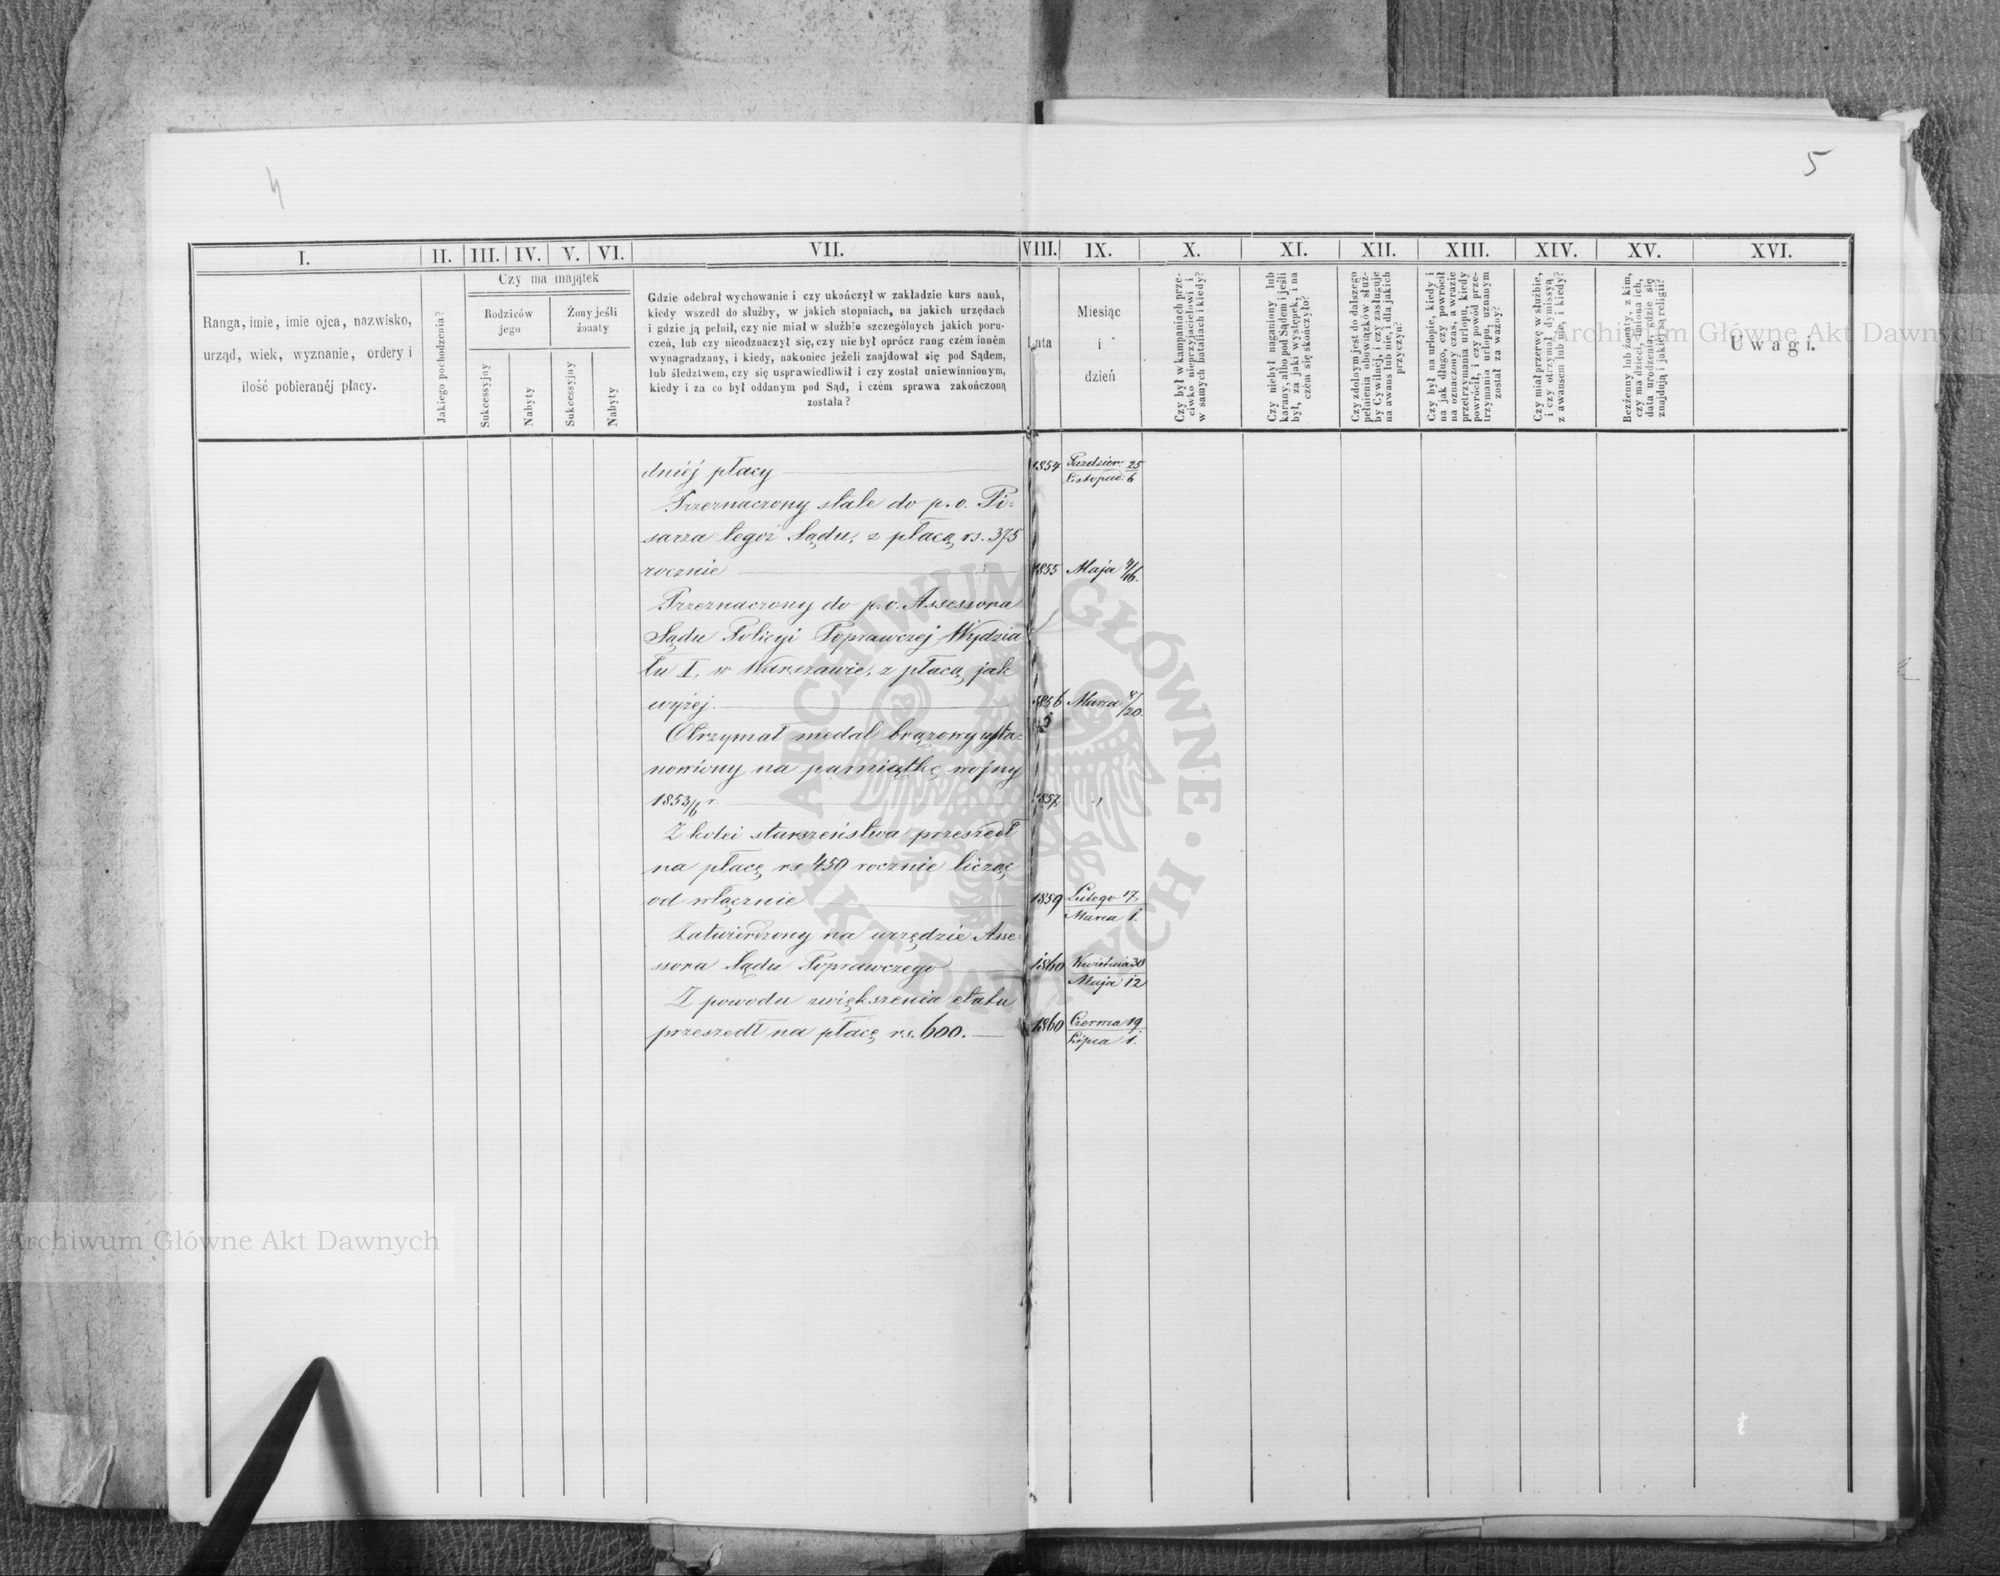 4
5
I.
II.
III.
IV.
V.
VI.
VII.
VIII.
IX.
X.
XI.
XII.
XIII.
XIV.
XV.
XVI.
Ranga, imie, imie ojca, nazwisko,
urząd, wiek, wyznanie, ordery i
ilość pobieranéj płacy.
Jakiego pochodzenia?
Czy ma majątek
Rodziców
jego
Żony jeśli
żonaty
Sukcessyjny
Nabyty
Sukcessyjny
Nabyty
Gdzie odebrał wychowanie i czy ukończył w zakładzie kurs nauk,
kiedy wszedł do służby, w jakich stopniach, na jakich urzędach
i gdzie ją pełnił, czy nie miał w służbie szczególnych jakich poru-
czeń, lub czy nieodznaczył się, czy nie był oprócz rang czém inném
wynagradzany, i kiedy, nakoniec jeżeli znajdował się pod Sądem,
lub śledztwem, czy się usprawiedliwił i czy został uniewinnionym,
kiedy i za co był oddanym pod Sąd, i czém sprawa zakończoną
została?
Lata
Miesiąc
i
dzień
Czy był w kampaniach prze-
ciwko nieprzyjacielowi i
w samych bataliach i kiedy?
Czy niebył naganiony lub
karany, albo pod Sądem i jeśli
był, za jaki występek, i na
czém się skończyło?
Czy zdolnym jest do dalszego
pełnienia obowiązków służ-
by Cywilnéj, i czy zasługuje
na awans lub nie, i dla jakich
przyczyn?
Czy był na urlopie, kiedy i
na jak długo, czy powrócił
na oznaczony czas, a w razie
przetrzymania urlopu, kiedy
powrócił, i czy powód prze-
trzymania urlopu, uznanym
został za ważny?
Czy miał przerwę w służbie,
i czy otrzymał dymissyą
z awansem lub nie, i kiedy?
Bezżenny lub żonaty, z kim,
czy ma dzieci, imiona ich,
data urodzenia, gdzie się
znajdują i jakiej są religii?
Uwagi.
dniéj płacy 1854 Paździer: 25
Listopad: 6
Przeznaczony stale do p. o. Pi=
sarza tegoż Sądu, z płacą rs. 375
rocznie 1855 Maja 4/16.
Przeznaczony do p. o. Assessora
Sądu Policyi Poprawczej Wydzia
łu I, w Warszawie, z płacą jak
wyżej. 1856 Marca 8/20.
Otrzymał medal brązowy usta=
nowiony na pamiątkę wojny
1853/6 r. 1857 "
Z kolei starszeństwa przeszedł
na płacę rs 450 rocznie licząc
od włącznie 1859 Lutego 17,
Marca 1.
Zatwierdzony na urzędzie Asse=
ssora Sądu Poprawczego 1860 Kwietnia 30
Maja 12
Z powodu zwiększenia etatu
przeszedł na płacę rs. 600. 1860 Czerwca 19
Lipca 1.
Archiwum Główne Akt Dawnych
Archiwum Główne Akt Dawnych
ARCHIWUM GŁÓWNE AKT DAWNYCH